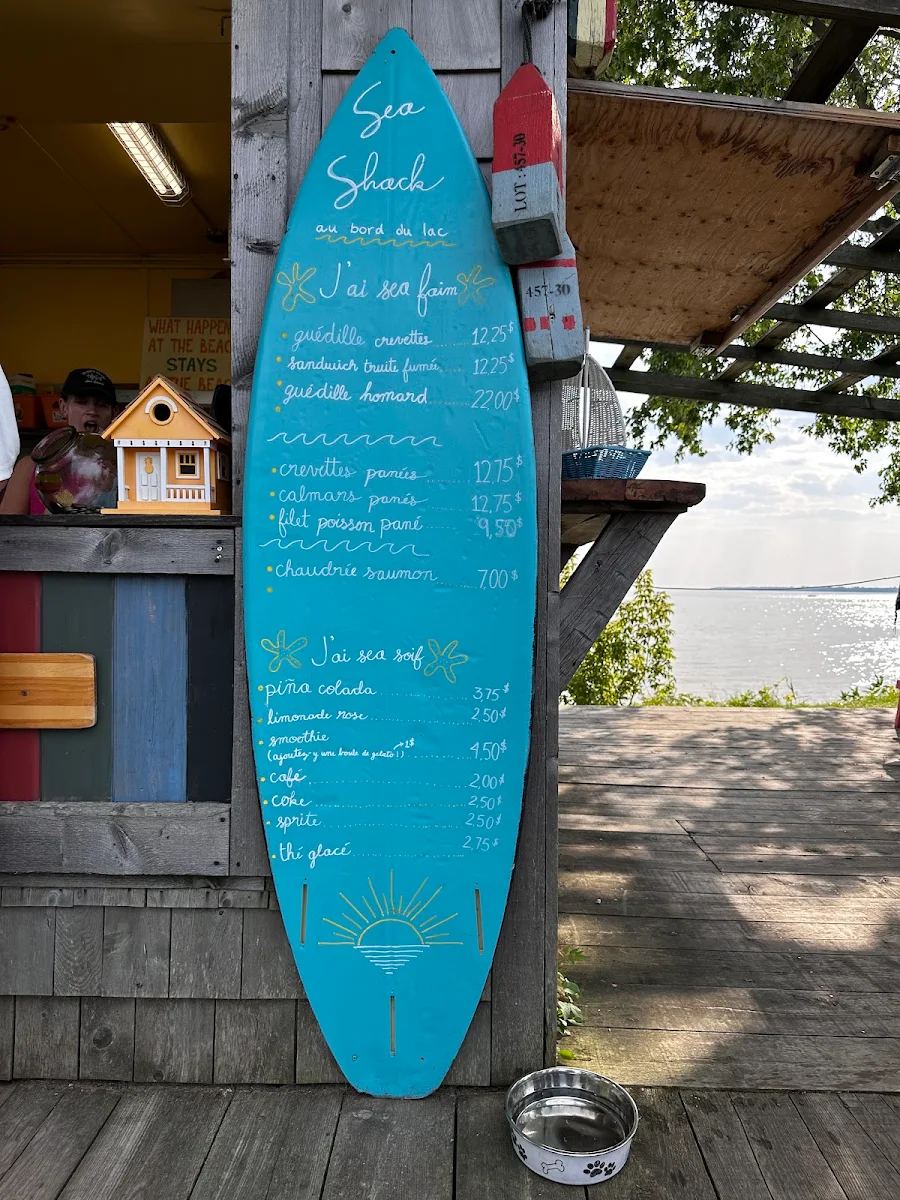 Sea
Shack
au bord du lac
J'ai sea faim
guédille crevettes 12,25$
sandwich truite fumée 12,25$
guédille homard 22,00$
crevettes panées 12,75$
calmars panés 12,75$
filet poisson pané 9,50$
chaudrée saumon 7,00$
J'ai sea soif
piña colada 3,75$
limonade rose 2,50$
smoothie
(ajoutez-y une boule de gelato!) 1$ 4,50$
café 2,00$
coke 2,50$
sprite 2,50$
thé glacé 2,75$
LOT: 457-30
457-30
WHAT HAPPEN
AT THE BEAC
STAYS
THE BEAC